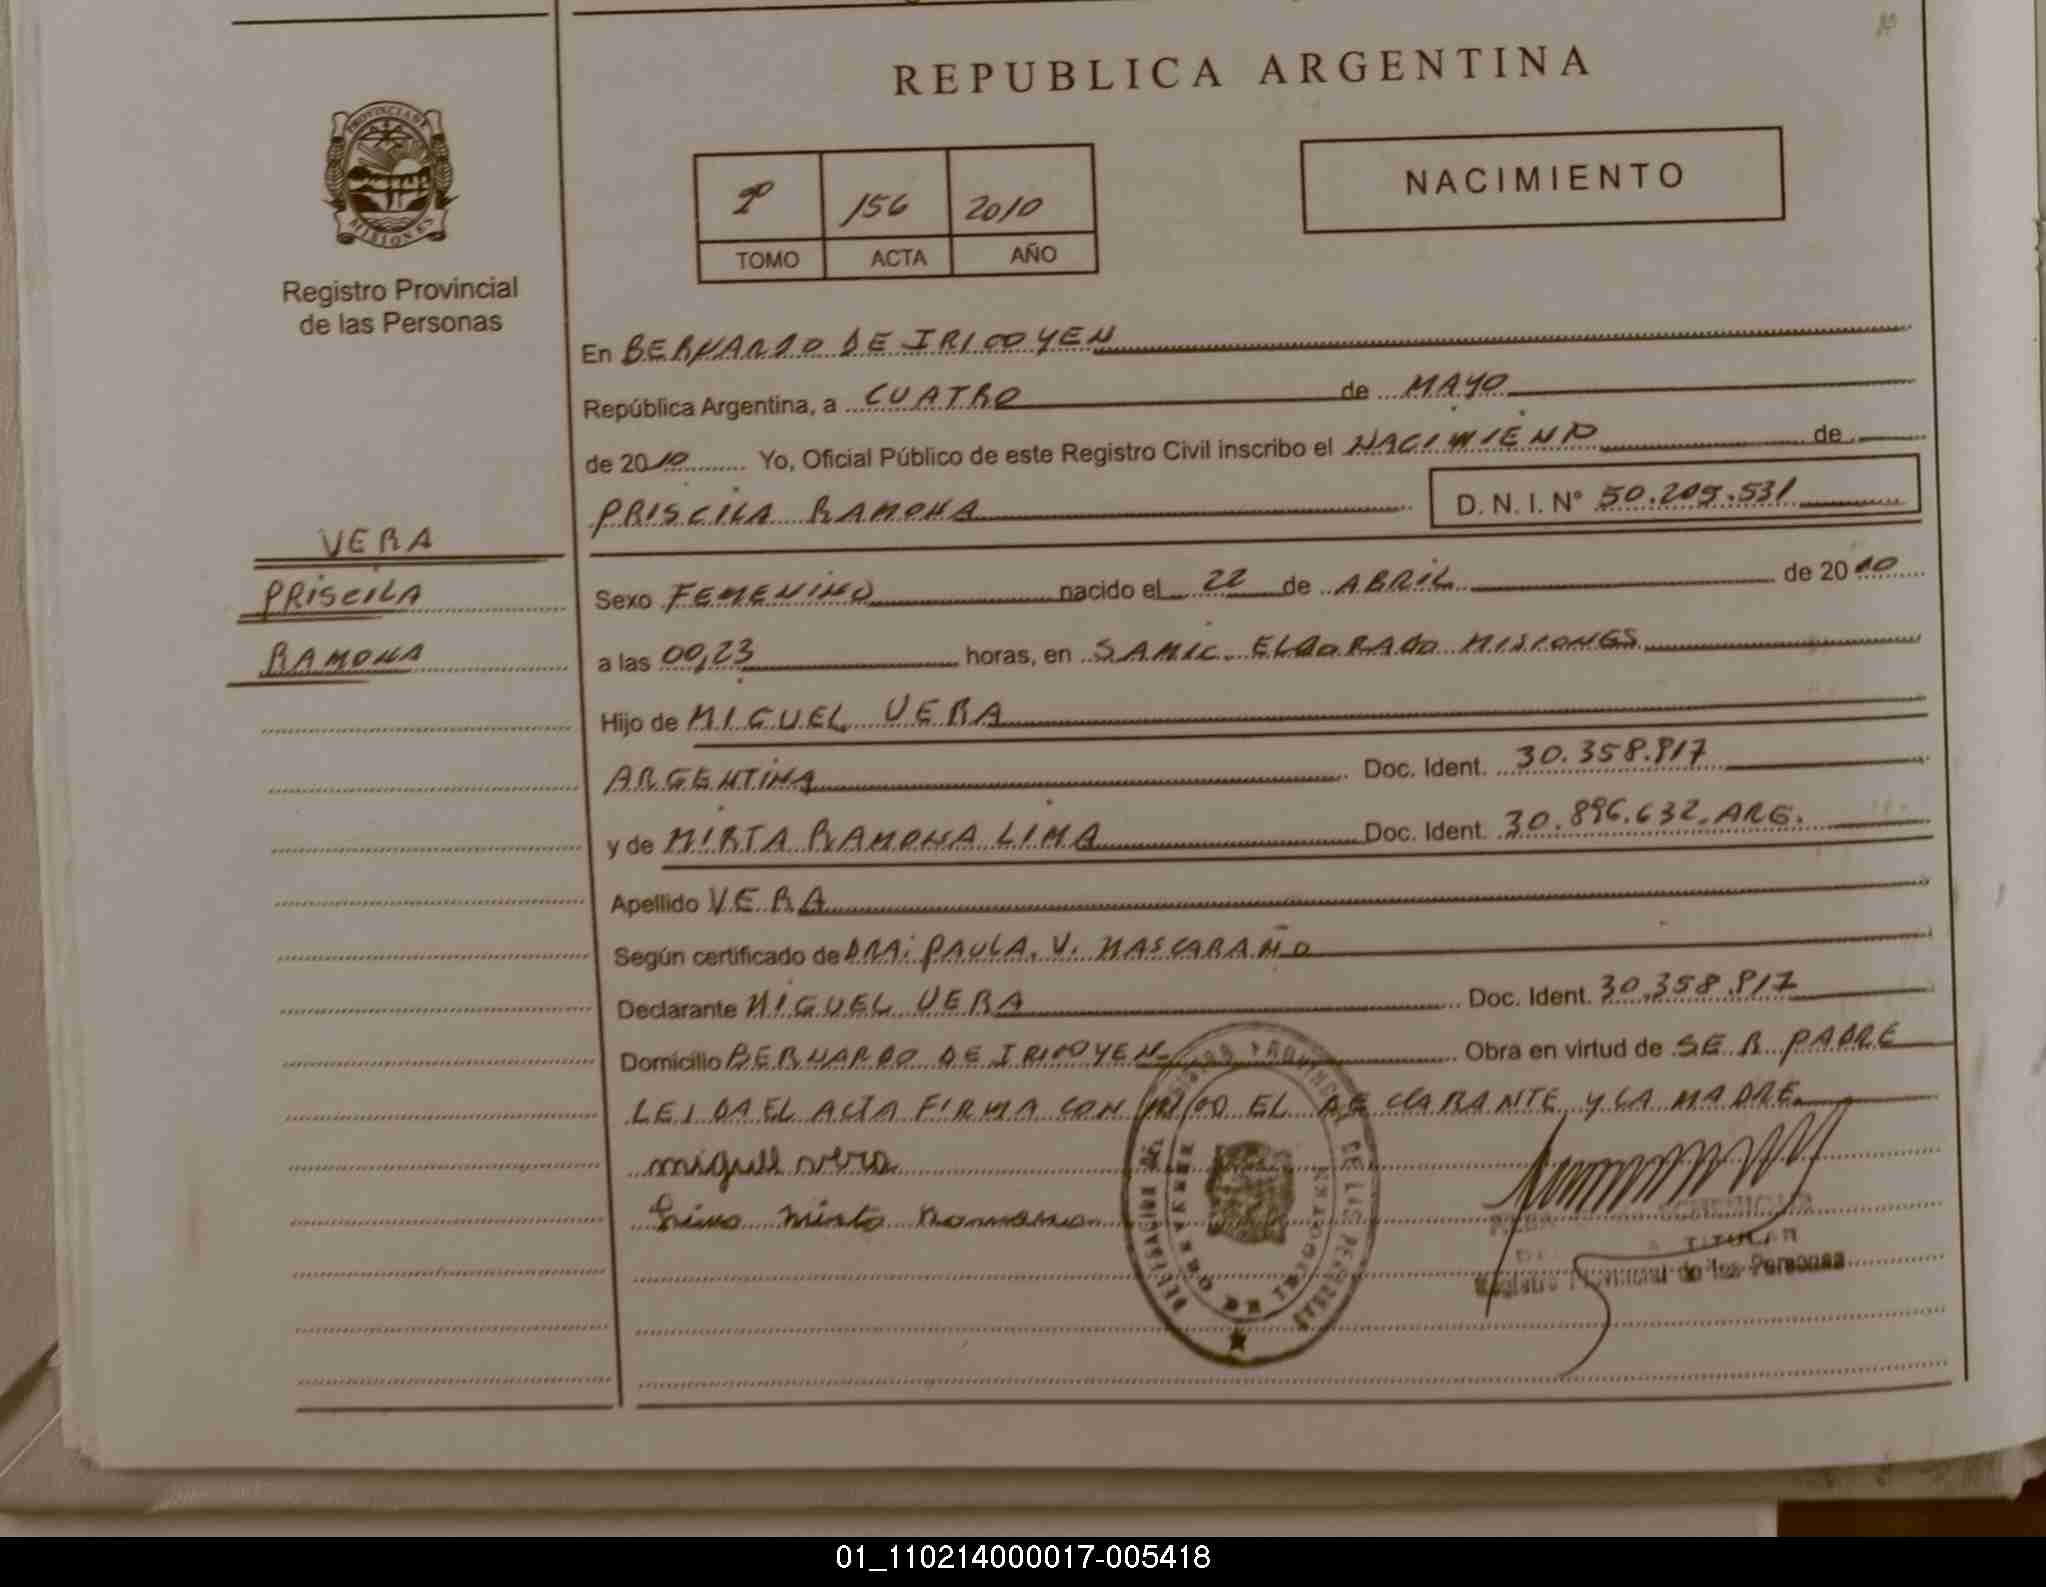 REPUBLICA ARGENTINA
PROVINCIA DE
MISIONES
Registro Provincial
de las Personas
156 2010
TOMO ACTA AÑO
NACIMIENTO
En BERNARDO DE IRIGOYEN
República Argentina, a CUATRO de MAYO
de 2010 Yo, Oficial Público de este Registro Civil inscribo el NACIMIENTO de
PRISCILA RAMONA D. N. I. N° 50.205.531
VERA
PRISCILA
RAMONA
Sexo FEMENINO nacido el 22 de ABRIL de 2010
a las 00,23 horas, en SAMIC. ELDORADO MISIONES
Hijo de MIGUEL VERA
ARGENTINA Doc. Ident. 30.358.817
y de MIRTA RAMONA LIMA Doc. Ident. 30.896.632. ARG.
Apellido VERA
Según certificado de DRA: PAULA. V. MASCARAÑO
Declarante MIGUEL VERA Doc. Ident. 30.358.817
Domicilio BERNARDO DE IRIGOYEN Obra en virtud de SER PADRE
LEIDA EL ACTA FIRMA CON MIGO EL DECLARANTE Y LA MADRE.
miguel vera
Lima Mirta Ramona
TITULAR
Registro Provincial de las Personas
01_110214000017-005418